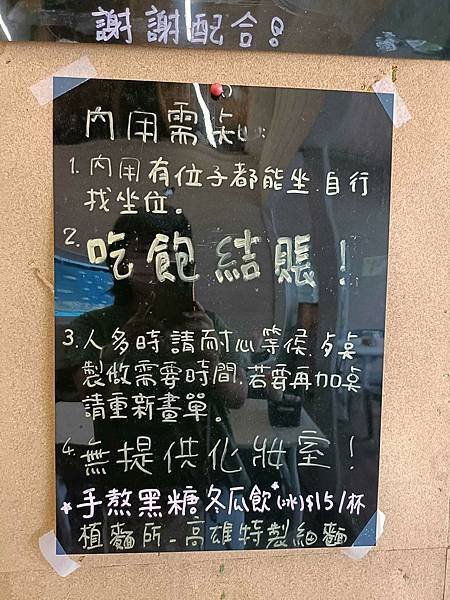 謝謝配合!
內用需知:
1. 內用有位子都能坐.自行
找坐位。
2. 吃飽結賬!
3. 人多時請耐心等侯.
製做需要時間.若要再加桌
請重新畫單。
4. 無提供化妝室!
*手熬黑糖冬瓜飲*(冰)$15/杯
植麵所-高雄特製細麵